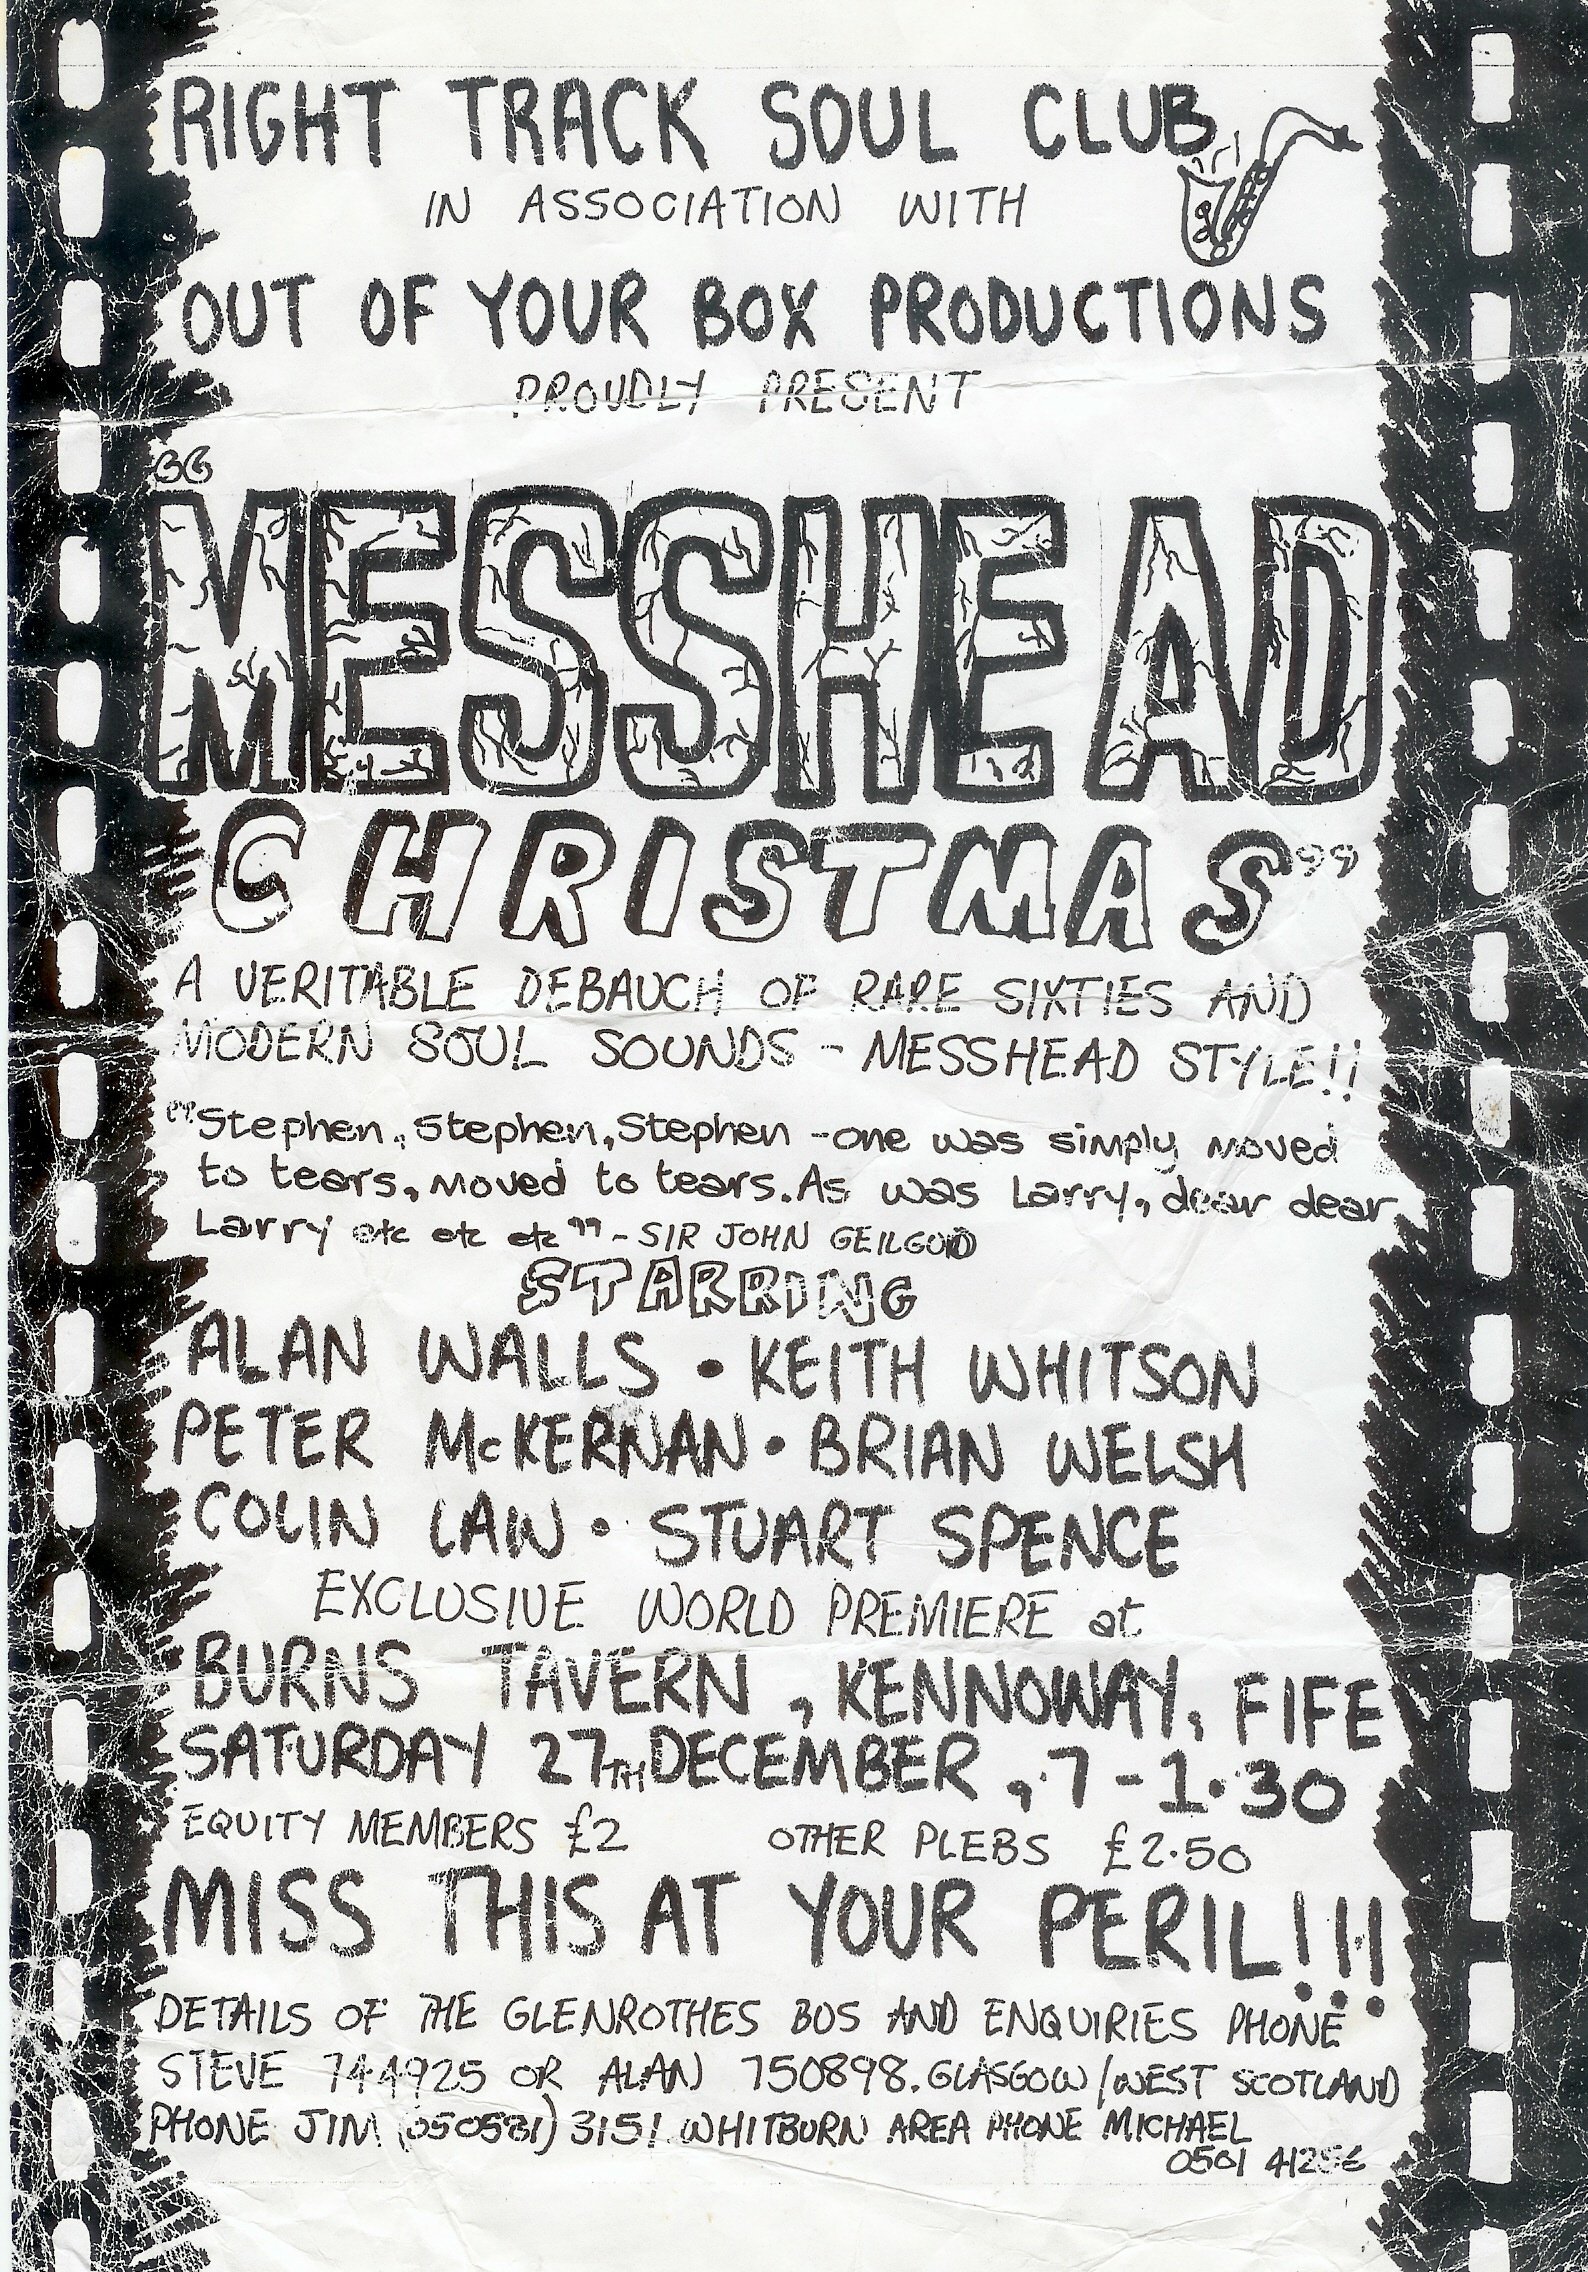 RIGHT TRACK SOUL CLUB
IN ASSOCIATION WITH
OUT OF YOUR BOX PRODUCTIONS
PROUDLY PRESENT
"MESSHEAD
CHRISTMAS"
A VERITABLE DEBAUCH OF RARE SIXTIES AND
MODERN SOUL SOUNDS - MESSHEAD STYLE!!
"Stephen, Stephen, Stephen - one was simply moved
to tears, moved to tears. As was Larry, dear dear
Larry etc etc etc" - SIR JOHN GEILGUD
STARRING
ALAN WALLS • KEITH WHITSON
PETER McKERNAN • BRIAN WELSH
COLIN LAW • STUART SPENCE
EXCLUSIVE WORLD PREMIERE at
BURNS TAVERN, KENNOWAY, FIFE
SATURDAY 27TH DECEMBER, 7-1.30
EQUITY MEMBERS £2 OTHER PLEBS £2.50
MISS THIS AT YOUR PERIL!!!
DETAILS OF THE GLENROTHES BUS AND ENQUIRIES PHONE
STEVE 744925 OR ALAN 750898. GLASGOW/WEST SCOTLAND
PHONE JIM (050581) 3151 WHITBURN AREA PHONE MICHAEL
0501 41256